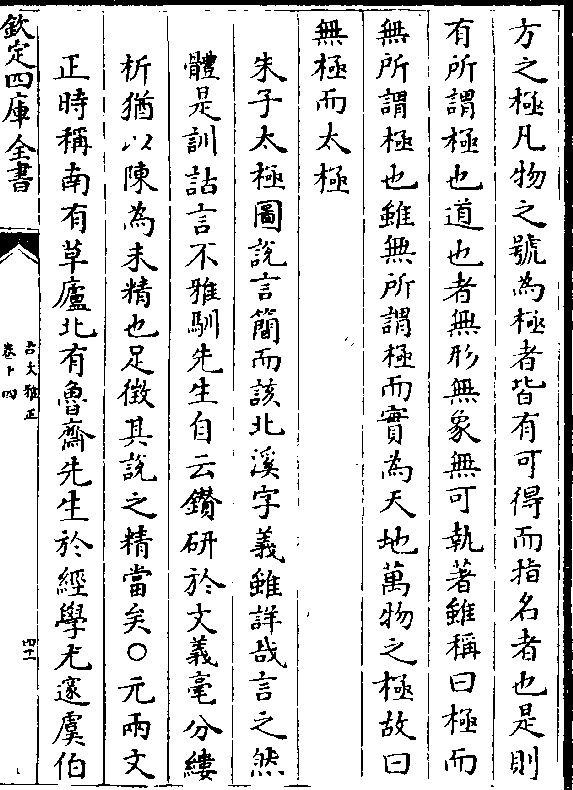 方之極凡物之號為極者皆有可得而指名者也是則
有所謂極也道也者無形無象無可執著雖稱曰極而
無所謂極也雖無所謂極而實為天地萬物之極故曰
無極而太極
朱子太極圖說言簡而該北溪字義雖詳哉言之然
體是訓詁言不雅馴先生自云鑚研於文義毫分縷
析猶以陳為未精也足徴其說之精當矣○元兩文
正時稱南有草廬北有魯齋先生於經學尤邃虞伯
欽定四庫全書
古文雅正
卷十四
四十一